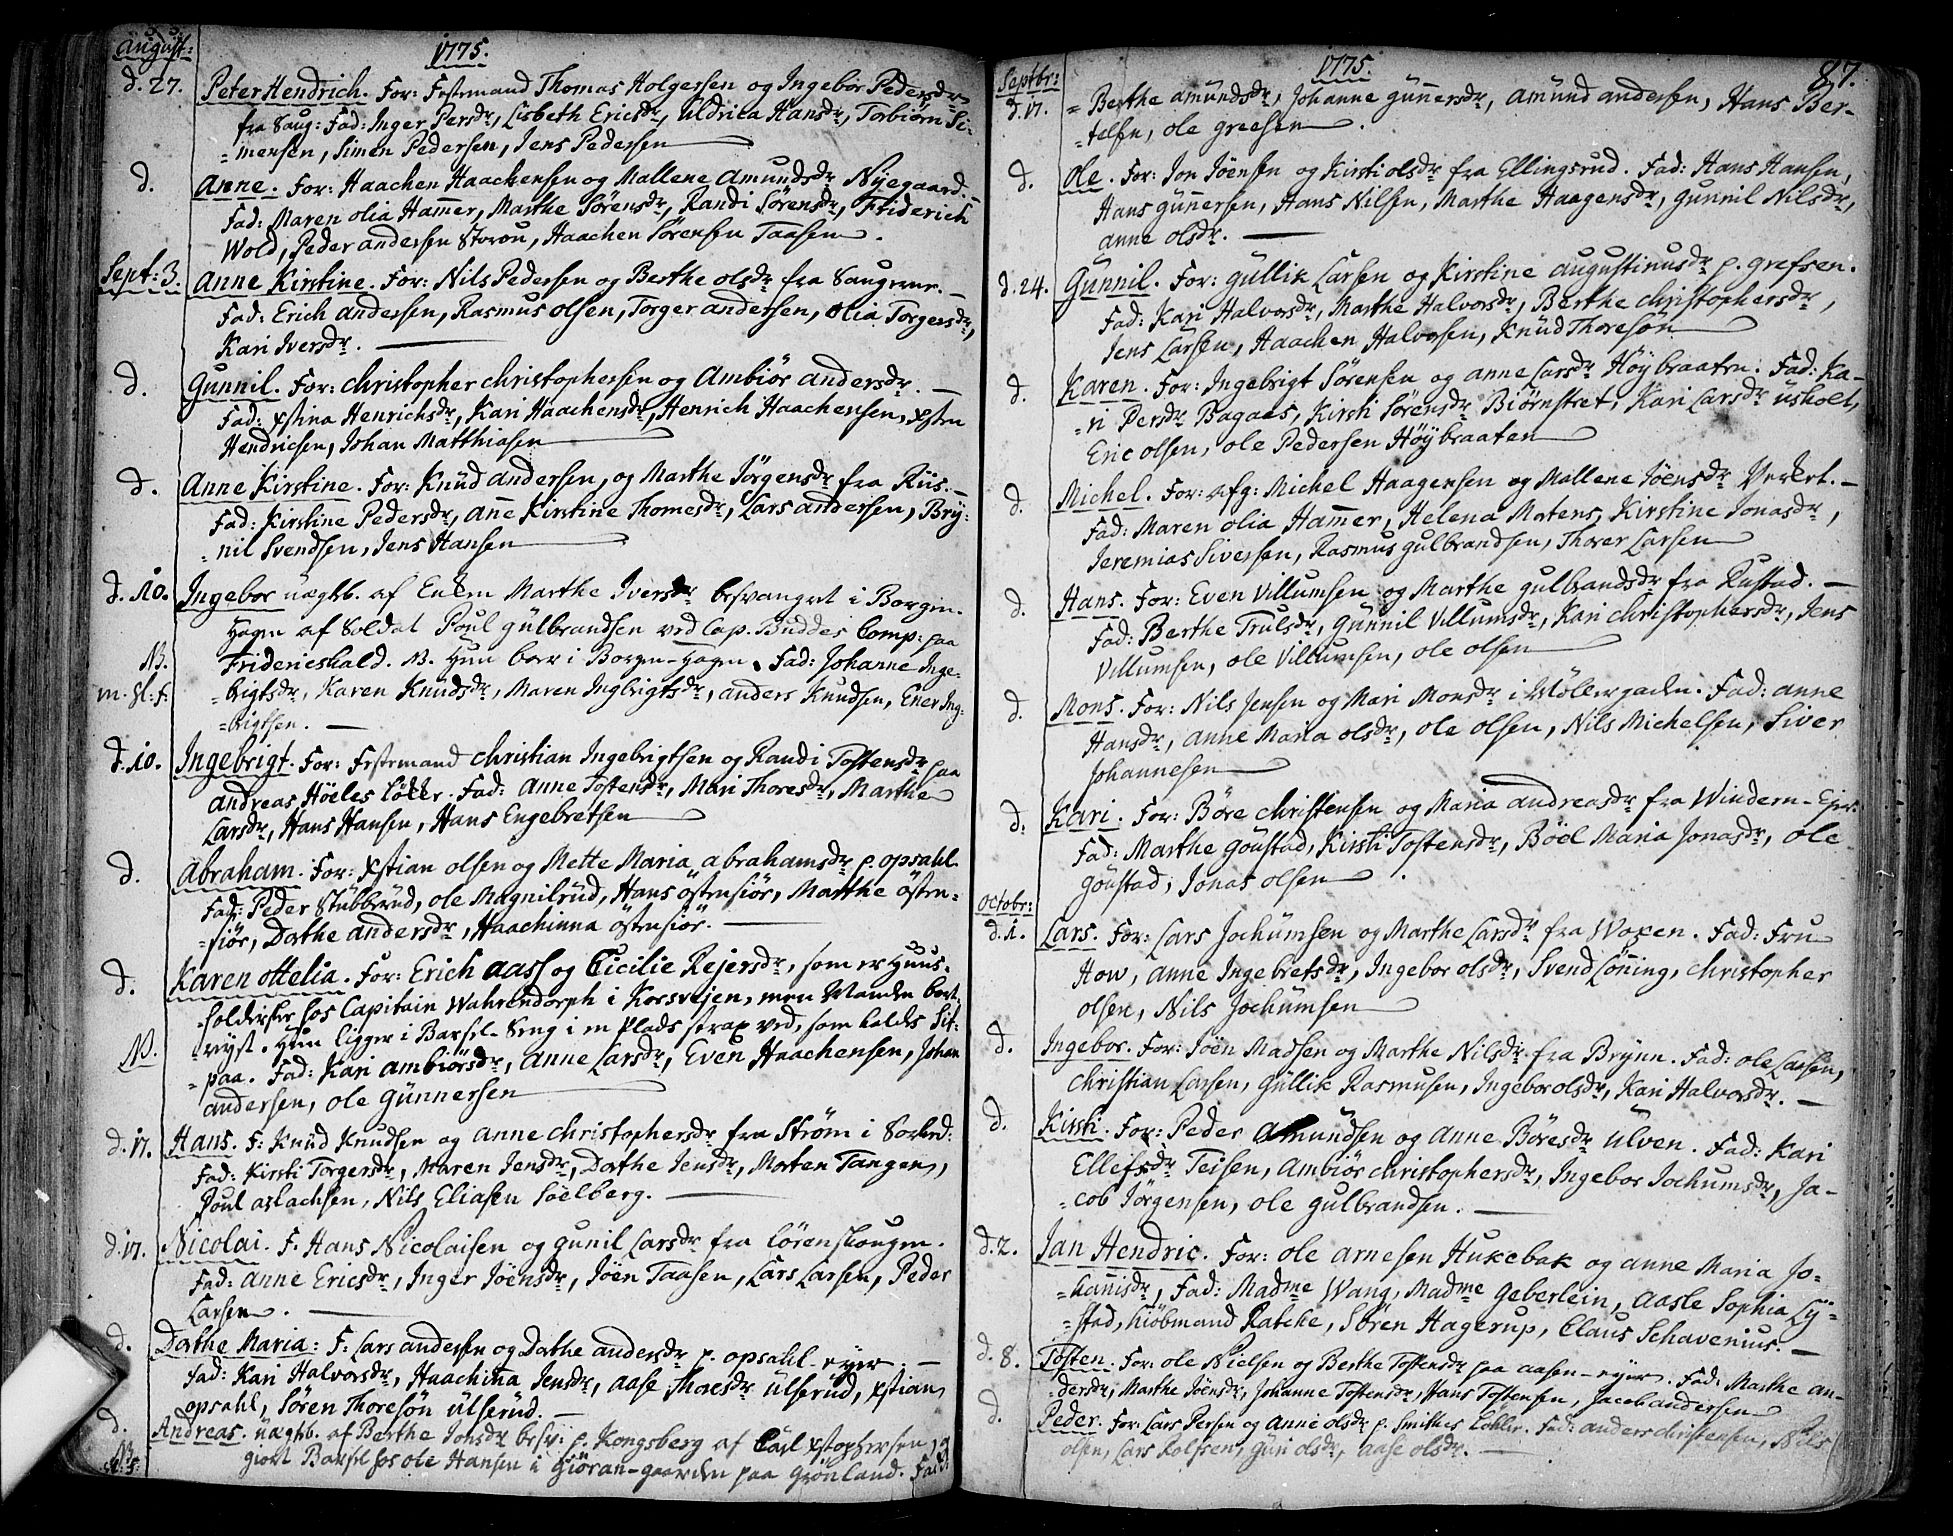 August:
1775.
d. 27. Peter Hendrich. For: Festemand Thomas Holgersen og Ingebor Pedersdr
fra Saug: Fad: Inger Persdr, Lisbeth Ericsdr, Uldrica Hansdr, Torbiörn Si-
-mensen, Simen Pedersen, Jens Pedersen
d. Anne. For: Haachen Haachensen og Mallene Amundsdr Nyegaard.
Fad: Maren Olia Ham̄er, Marthe Sörensdr, Randi Sörensdr, Friderich
Wold, Peder Andersen Storön, Haachen Sörensen Taasen.
Sept: 3. Anne Kirstine. For: Nils Pedersen og Berthe Olsdr fra Saugerne.
Fad: Erich Andersen, Rasmus Olsen, Torger Andersen, Olia Torgersdr,
Kari Iversdr.
d. Gunnil. For: Christopher Christophersen og Ambiör Andersdr.
Fad: Xstina Henrichsdr, Kari Haachensdr, Henrich Haachensen, Xsten
Hendrichsen, Johan Matthiasen
d. Anne Kirstine. For: Knüd Andersen, og Marthe Jörgensdr fra Riis.
Fad: Kirstine Pedersdr, An̄e Kirstine Thomesdr, Lars Andersen, Bry-
-nil Svendsen, Jens Hansen
d. 10. Ingebor uægtb. af Enken Marthe Iversdr besvangret i Borgen-
Hagen af Soldat Poul Gülbrandsen ved Cap. Buddes Comp: paa
NB. Friderichshald. NB. Hun boer i Borgen-Hagen. Fad: Johanne Inge-
m. Sl: f: -brigtsdr, Karen Knudsdr, Maren Ingbrigtsdr, Anders Knudsen, Ener Ing-
-brigtsen.
d. 10. Ingebrigt. For: Festemand Christian Ingebrigtsen og Randi Tostensdr paa
Andreas Höeles Löke. Fad: Anne Tostensdr, Mari Thoresdr, Marthe
Larsdr, Hans Hansen, Hans Engebretsen
d. Abraham. For: Xstian Olsen og Mette Maria Abrahamsdr p. Opsahl.
Fad: Peder Stubberud, Ole Magnilrüd, Hans Östensiör, Marthe Östen-
-siör, Dorthe Andersdr, Haachinna Östensiör.
d. Karen Ottelia. For: Erich Aass og Cicilie Rejersdr, som er Huus-
-holderske hos Capitain Wahrendorph i Korsvejen, men Manden bort-
NB. -reyst. Hun ligger i Barsel-Seng i en Plads strax ved, som kaldes Sit-
-paa. Fad: Kari Ambiörsdr, Anne Larsdr, Even Haachensen, Johan
Andersen, Ole Günnersen
d. 17. Hans. F: Knüd Knudsen og Anne Christophersdr fra Ström i Sorked:
Fad: Kirsti Torgersdr, Maren Jensdr, Dorthe Jensdr, Morten Tangen,
Poul Aslachsen, Nils Eliasen Sölberg.
d. 17. Nicolai. F. Hans Nicolaisen og Gunil Larsdr fra Lörenskougen.
Fad: Anne Ericsdr, Inger Jöensdr, Jöen Taasen, Lars Larsen, Peder
Larsen.
d. Dorthe Maria: F: Lars Andersen og Dorthe Andersdr p. Opsahl-eyer.
Fad: Kari Halvorsdr, Haachin̄a Jensdr, Aase Thoresdr Ulserüd, Xstian
Opsahl, Sören Thoresön Ulserüd.
d. Andreas. uægtb. af Berthe Jonsdr besv: p. Kongsberg af Carl Xstophersen,
NB. giort Barsel hos Ole Hansen i Giöran-gaarden paa Grönland. Fad:
87.
Septbr:
1775
d. 17. -Berthe Amundsdr, Johanne Gün̄ersdr, Amund Andersen, Hans Ber-
-telsen, Ole Greesen.
d. Ole. For: Jon Jöensen og Kirsti Olsdr fra Ellingsrud. Fad: Hans Hansen,
Hans Gün̄ersen, Hans Nilsen, Marthe Haagensdr, Gunnil Nilsdr,
Anne Olsdr.
d. 24. Gunnil. For: Güllik Larsen og Kirstine Augustinusdr p. Grefsen.
Fad: Kari Halvorsdr, Marthe Halvorsdr, Berthe Christophersdr,
Jens Larsen, Haachen Halvorsen, Knüd Thoresön
d. Karen. For: Ingebrigt Sörensen og Anne Larsdr Höybraaten. Fad: Ka-
-ri Persdr Bagaas, Kirsti Sörensdr Biörnstret, Kari Larsdr Usholt,
Eric Olsen, Ole Pedersen Höybraaten
d. Michel. For: Afg: Michel Haagensen og Mallene Jöensdr Verket.
Fad: Maren Olia Ham̄er, Helena Mortens, Kirstine Jonasdr,
Jeremias Siversen, Rasmus Gulbrandsen, Thorer Larsen
d. Hans. For: Even Villumsen og Marthe Gulbrandsdr fra Rustad.
Fad: Berthe Trulsdr, Gunnil Villumsdr, Kari Christophersdr, Jens
Villumsen, Ole Villumsen, Ole Olsen
d. Mons. For: Nils Jensen og Mari Monsdr i Möllergaden. Fad: Anne
Hansdr, Anne Maria Olsdr, Ole Olsen, Nils Michelsen, Siver
Johannesen
d. Kari. For: Böre Christensen og Maria Andreasdr fra Windern-Ejer.
Fad: Marthe Göustad, Kirsti Tostensdr, Böel Maria Jonasdr, Ole
Göustad, Jonas Olsen.
Octobr:
d. 1. Lars. For: Lars Jochümsen og Marthe Larsdr fra Woxen. Fad: Fru
How, Anne Ingebretsdr, Ingebor Olsdr, Svend Löning, Christopher
Olsen, Nils Jochümsen
d. Ingebor. For: Jöen Madsen og Marthe Nilsdr fra Brynn. Fad: Ole Larsen,
Christian Larsen, Güllik Rasmusen, Ingebor Olsdr, Kari Halvorsdr.
d. Kirsti. For: Peder Amundsen og Anne Böresdr Ulven. Fad: Kari
Ellefsdr Teisen, Ambiör Christophersdr, Ingebor Jochumsdr, Ja-
-cob Jörgensen, Ole Gulbrandsen.
d. 2. Jan Hendric. For: Ole Arnesen Hukebak og Anne Maria Jo-
-han̄isdr, Fad: Madme Wang, Madme Geberlein, Aasle Sophia Ly-
-stad, Kiöbmand Ratche, Sören Hagerup, Claus Schavenius.
d. 8. Tosten. For: Ole Nielsen og Berthe Tostensdr paa Aasen-eyer. Fad: Marthe An-
-dersdr, Marthe Jöensdr, Johanne Tostensdr, Hans Tostensen, Jacob Andersen
d. Peder. For: Lars Persen og Anne Olsdr p. Smithes Lökke. Fad: Anders Christensen, Nils
Olsen, Lars Rolfsen, Guri Olsdr, Aase Olsdr.